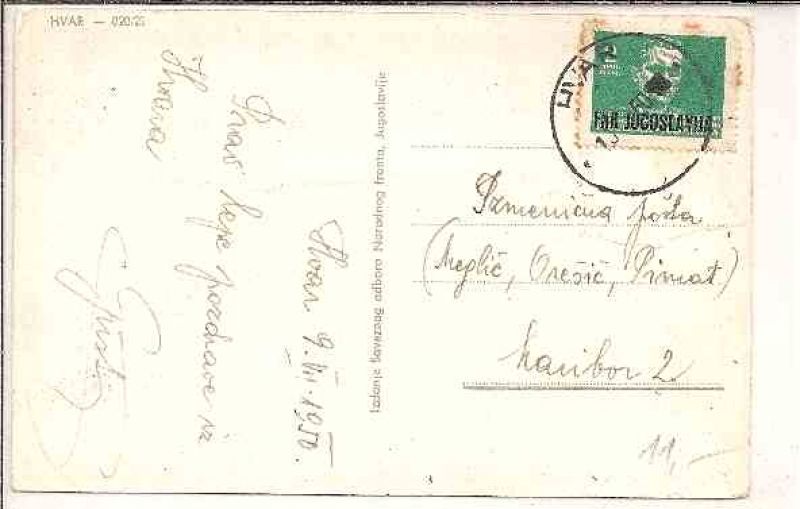 HVAR —
Prav lepe pozdrave iz
Hvara
Hvar 9. VI. 1950.
Izdanje Saveznog odbora Narodnog fronta, Jugoslavije
HVAR
FNR JUGOSLAVIJA
Izmenična pošta
(Meglič, Orešič, Pirnat)
Maribor 2
11,-